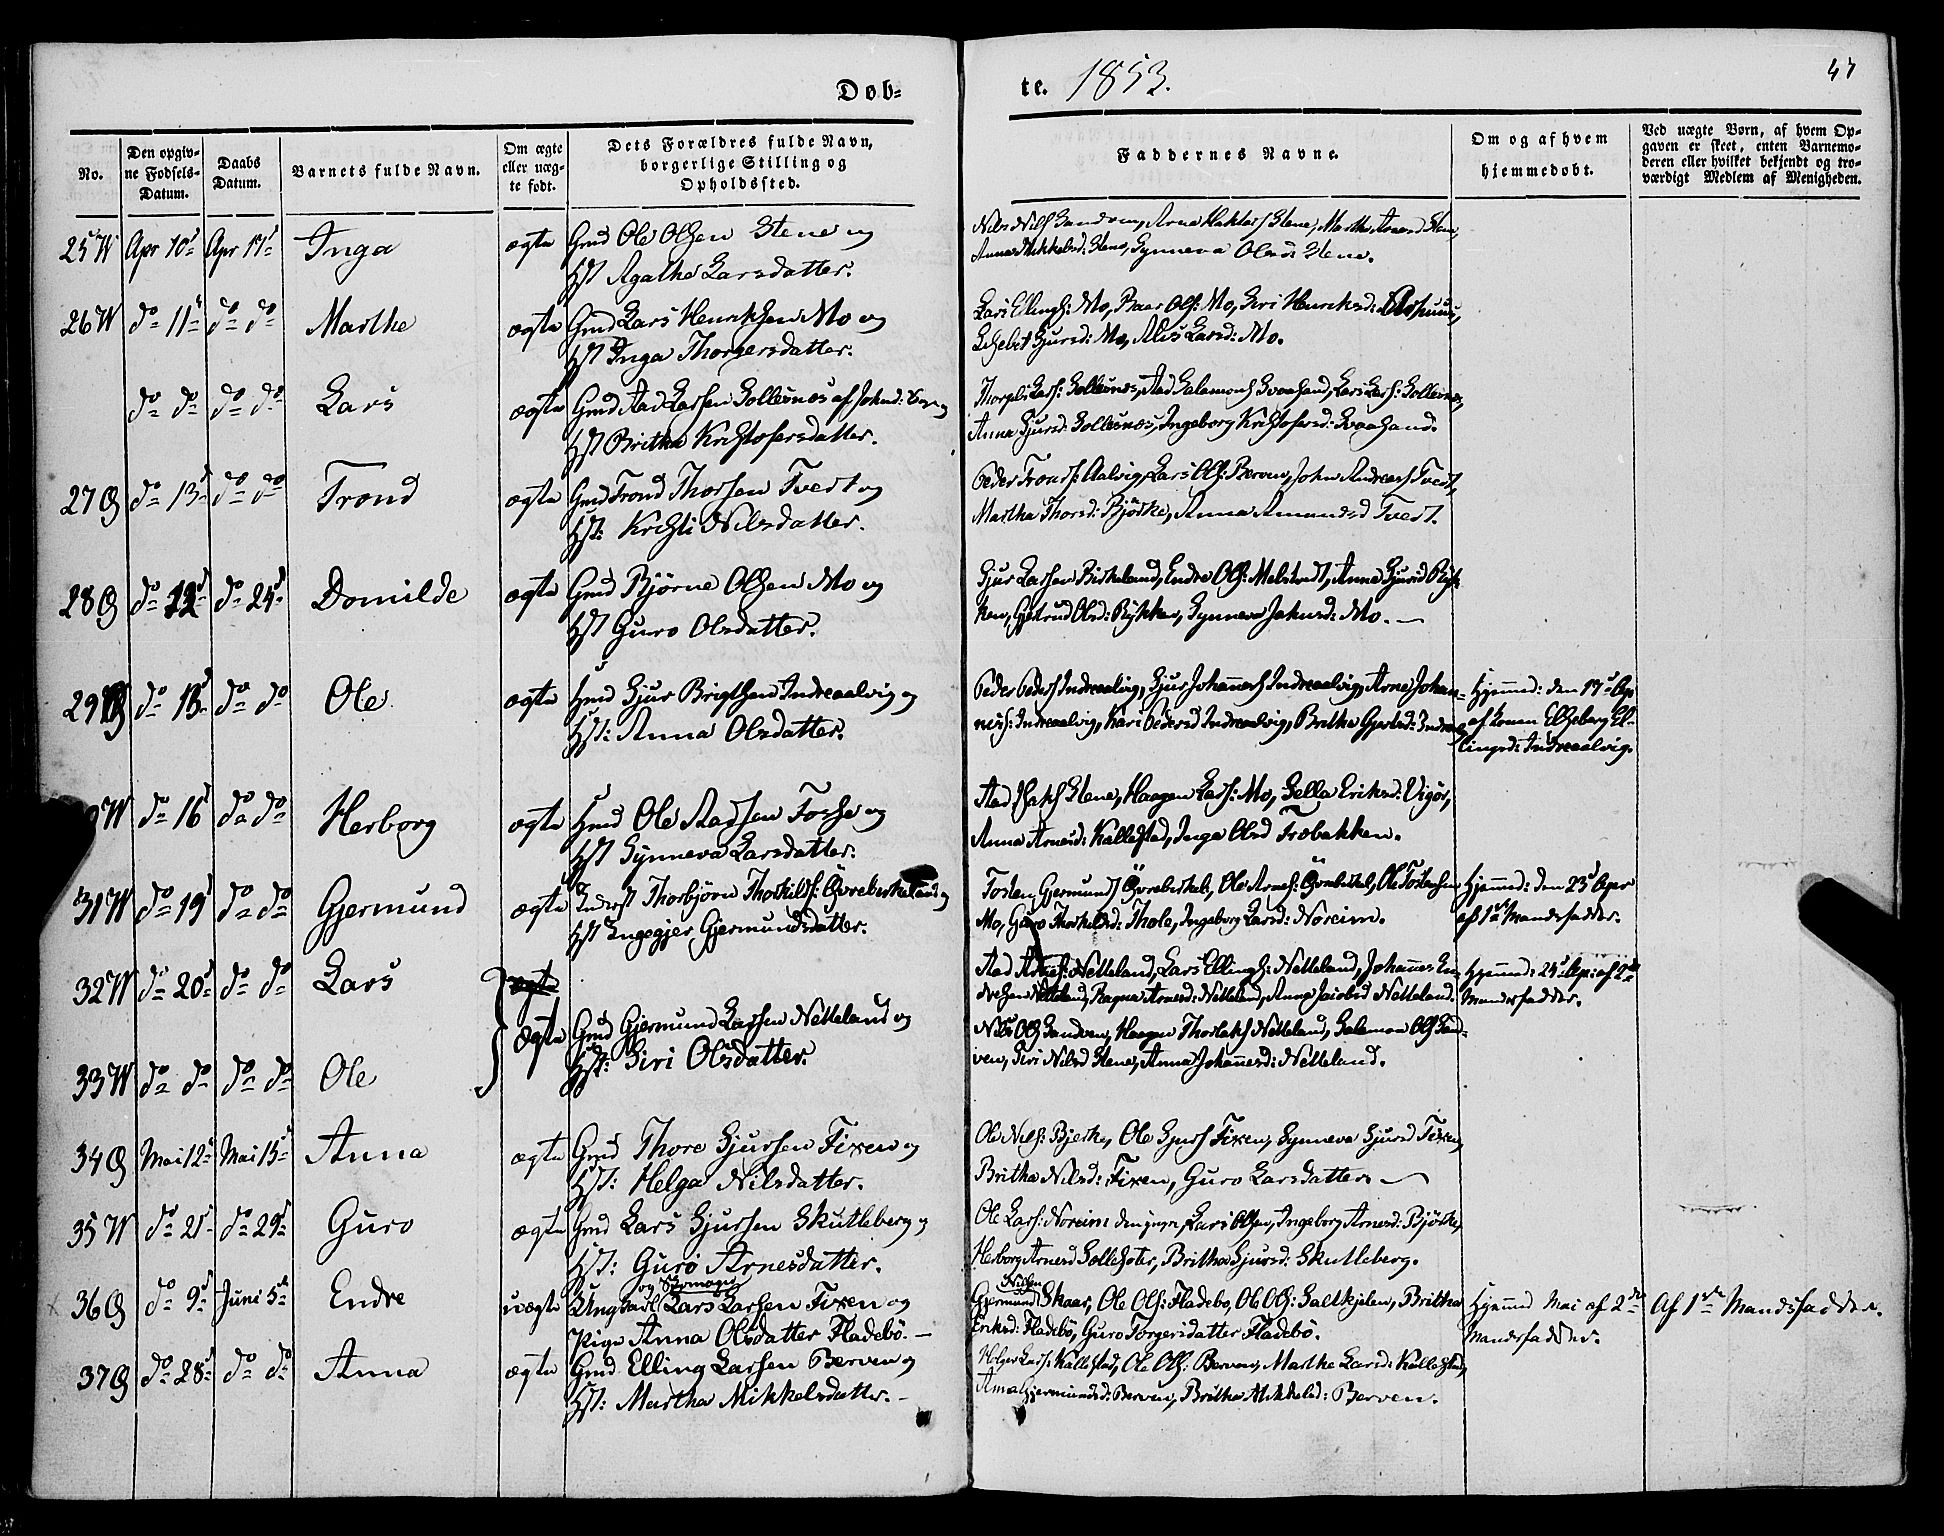 Døb-
te. 1853.
47
No.
Den opgiv-
ne Fødsels-
Datum.
Daabs
Datum.
Barnets fulde Navn.
Om ægte
eller uæg-
te født.
Dets Forældres fulde Navn,
borgerlige Stilling og
Opholdssted.
Faddernes Navne.
Om og af hvem
hjemmedøbt.
Ved uægte Børn, af hvem Op-
gaven er skeet, enten Barnemo-
deren eller hvilket bekjendt og tro-
værdigt Medlem af Menigheden.
25 W Apr 10 Apr 17 Inga ægte Gmd Ole Olsen Stene og
Hst Agathe Larsdatter.
Nils Nils Sandven, Arne Stene, Martha Stene,
Anna Mikkelsd: Stene, Synneva Olsd: Stene.
26 W do 11 do do Marthe ægte Gmd Lars Henriksen Mo og
Hst Inga Thorgersdatter.
Lars Ellings: Mo, Ols: Mo, Siri Henriksd:
Sjursd: Mo, Larsd: Mo.
do do do do Lars ægte Gmd Aad Larsen Sollesnes af
Hst Britha Kristofersdatter.
Lars: Sollesnes, Aad Salamons Svaasand, Lars Lars: Sollesnes,
Anna Sjursd: Sollesnes, Ingeborg Kristofersd: Svaasand.
27 Ø do 13 do do Trond ægte Gmd Trond Thorsen Tvedt og
Hst: Kristi Nilsdatter.
Peder Tronds: Aalvig, Lars Ols: Berven, John Andreas Tvedt,
Martha Thorsd: Bjørke, Anna Amundsd Tvedt.
28 Ø do 12 do 24 Domilde ægte Gmd Bjørne Olsen Mo og
Hst Guro Olsdatter.
Sjur Larsen Birkeland, Endre Ols: Melstvedt, Anna Sjursd Ryk-
ken, Gjetrud Olsd: Rykken, Synneva Johnsd: Mo. —
29 Ø do 13 do do Ole ægte Hmd Sjur Brigtsen Indreaalvig og
Hst: Anna Olsdatter.
Peder Peders Indreaalvig, Sjur Johannes Indreaalvig, Arne Johan-
nes: Indreaalvig, Kari Pedersd Indreaalvig, Britha Gjertsd:
Hjemmed: den 17 Apr
af Konen Elseborg El-
lingsd: Indreaalvig.
W do 16 do do Herborg ægte Hmd Ole Aadsen Fosse og
Hst Synneva Larsdatter.
Aad Stene, Haagen Lars: Mo, Sella Eriksd: Vigør,
Anna Arnesd: Kallestad, Inga Olsd Træbakken.
31 W do 19 do do Gjermund ægte Inderst Thorbjørn Thorkilds: Øvreberkeland og
Hst Ingegjer Gjermundsdatter.
Tosten Gjermunds Øvreberkel:, Ole Arnes: Øvreberkel, Ole Tostensen
Mo, Guro Thorkildsd: Thole, Ingeborg Larsd: Noreim.
Hjemmed: den 23 Apr
af 1ste Mandsfadder.
32 W do 20 do do Lars ægte
Aad Arnes: Netteland, Lars Ellings: Netteland, Johannes En-
dresen Netteland, Ragna Arnesd: Netteland, Anna Jacobsd Netteland.
Hjemmed: 24 Apr: af 2den
Mandsfadder.
ægte Gmd Gjermund Larsen Netteland og
Hst: Siri Olsdatter.
33 W do do do do Ole
Nils Ols Sandven, Haagen Netteland, Salamon Ols San-
ven, Siri Nilsd Stene, Anna Johannesd: Netteland.
34 Ø Mai 12 Mai 15 Anna ægte Gmd Thore Sjursen Fixen og
Hst: Helga Nilsdatter.
Ole Nils: Bjerke, Ole Sjurs Fixen, Synneva Sjursd Fixen,
Britha Nilsd: Fixen, Guro Larsdatter —
35 W do 21 do 29 Guro ægte Gmd Lars Sjursen Skutleberg og
Hst: Guro Arnesdatter.
Ole Lars: Noreim den yngre, Lars Olsen, Ingeborg Arnesd: Bjørke,
Herborg Arnesd Solleseter, Britha Sjursd: Skutleberg.
36 Ø do 9 Juni 5 Endre uægte Ungkarl og Skomager Lars Larsen Fixen og
Pige Anna Olsdatter Fladebø. —
Nielsen
Gjermund Skaar, Ole Ols: Fladebø, Ole Ols: Saltkjelen, Britha
Eriksd: Fladebø, Guro Torgersdatter Fladebø.
Hjemmed Mai af 2den
Mandsfadder.
Af 1ste Mandsfadder.
37 Ø do 28 do do Anna ægte Gmd Elling Larsen Berven og
Hst: Martha Mikkelsdatter. —
Holger Lars: Kallestad, Ole Ols: Berven, Marthe Larsd: Kallestad,
Anna Gjermundsd: Berven, Britha Mikkelsd: Berven.